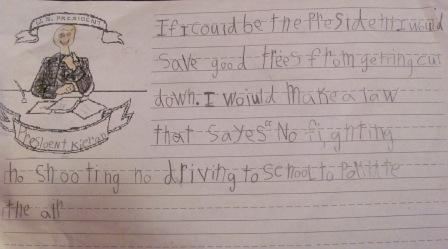 U.S. PRESIDENT
President Kieran
If I could be the President I would
save good trees from getting cut
down. I woiuld make a law
that sayes "No fighting
no shooting no driving to school to polutte
the air